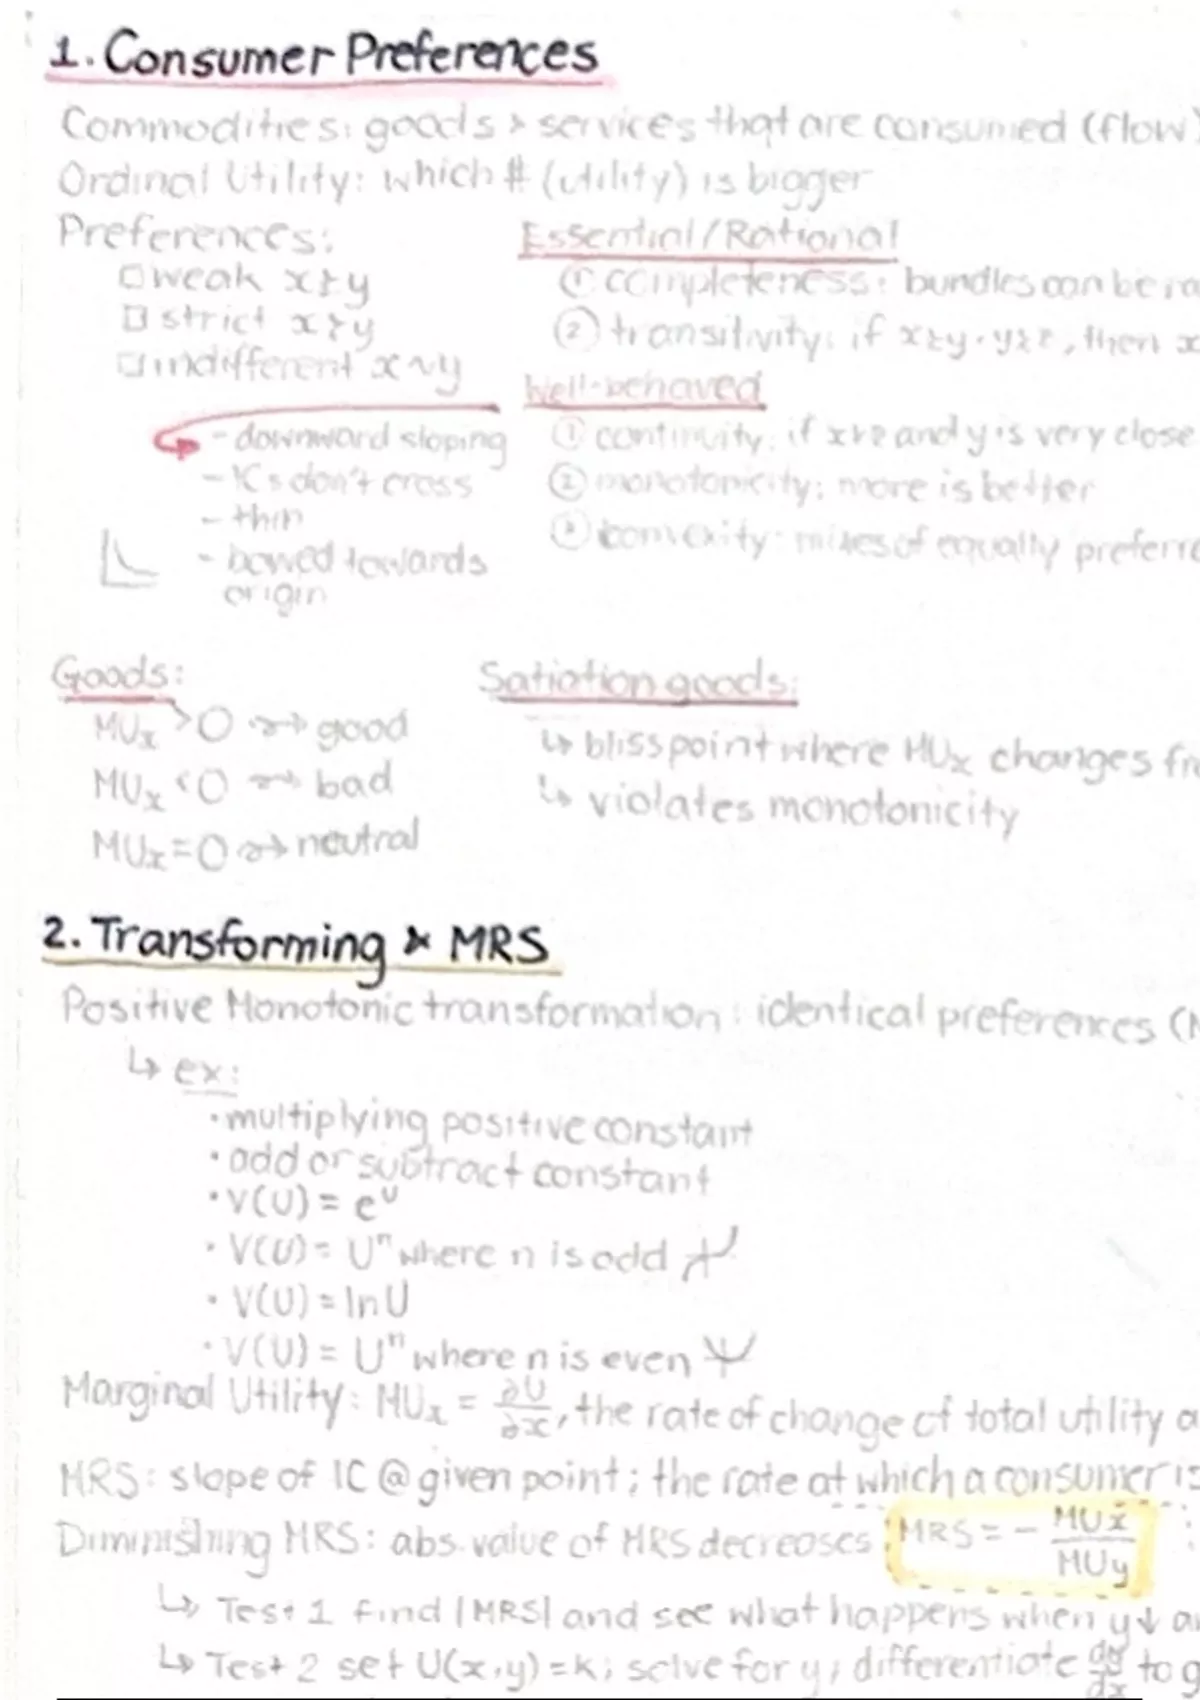 1. Consumer Preferences
Commodities: goods & services that are consumed (flow)
Ordinal Utility: which # (utility) is bigger
Preferences:
□ weak x≿y
□ strict x≻y
□ indifferent x~y
Essential/Rational
① completeness: bundles can be ra
② transitivity: if x≿y, y≿z, then x
Well-behaved
① continuity: if x≿z and y is very close
② monotonicity: more is better
③ convexity: mixes of equally preferre
- downward sloping
- ICs don't cross
- thin
- bowed towards
origin
Goods:
MUx > 0 → good
MUx < 0 → bad
MUx = 0 → neutral
Satiation goods:
↳ bliss point where MUx changes fro
↳ violates monotonicity
2. Transforming & MRS
Positive Monotonic transformation: identical preferences (M
↳ ex:
• multiplying positive constant
• add or subtract constant
• V(U) = e^U
• V(U) = U^n where n is odd
• V(U) = ln U
• V(U) = U^n where n is even
Marginal Utility: MUx = ∂U/∂x, the rate of change of total utility a
MRS: slope of IC @ given point; the rate at which a consumer is
Diminishing MRS: abs. value of MRS decreases MRS = - MUx/MUy
↳ Test 1 find |MRS| and see what happens when y↓ an
↳ Test 2 set U(x,y) = k; solve for y; differentiate dy/dx to g